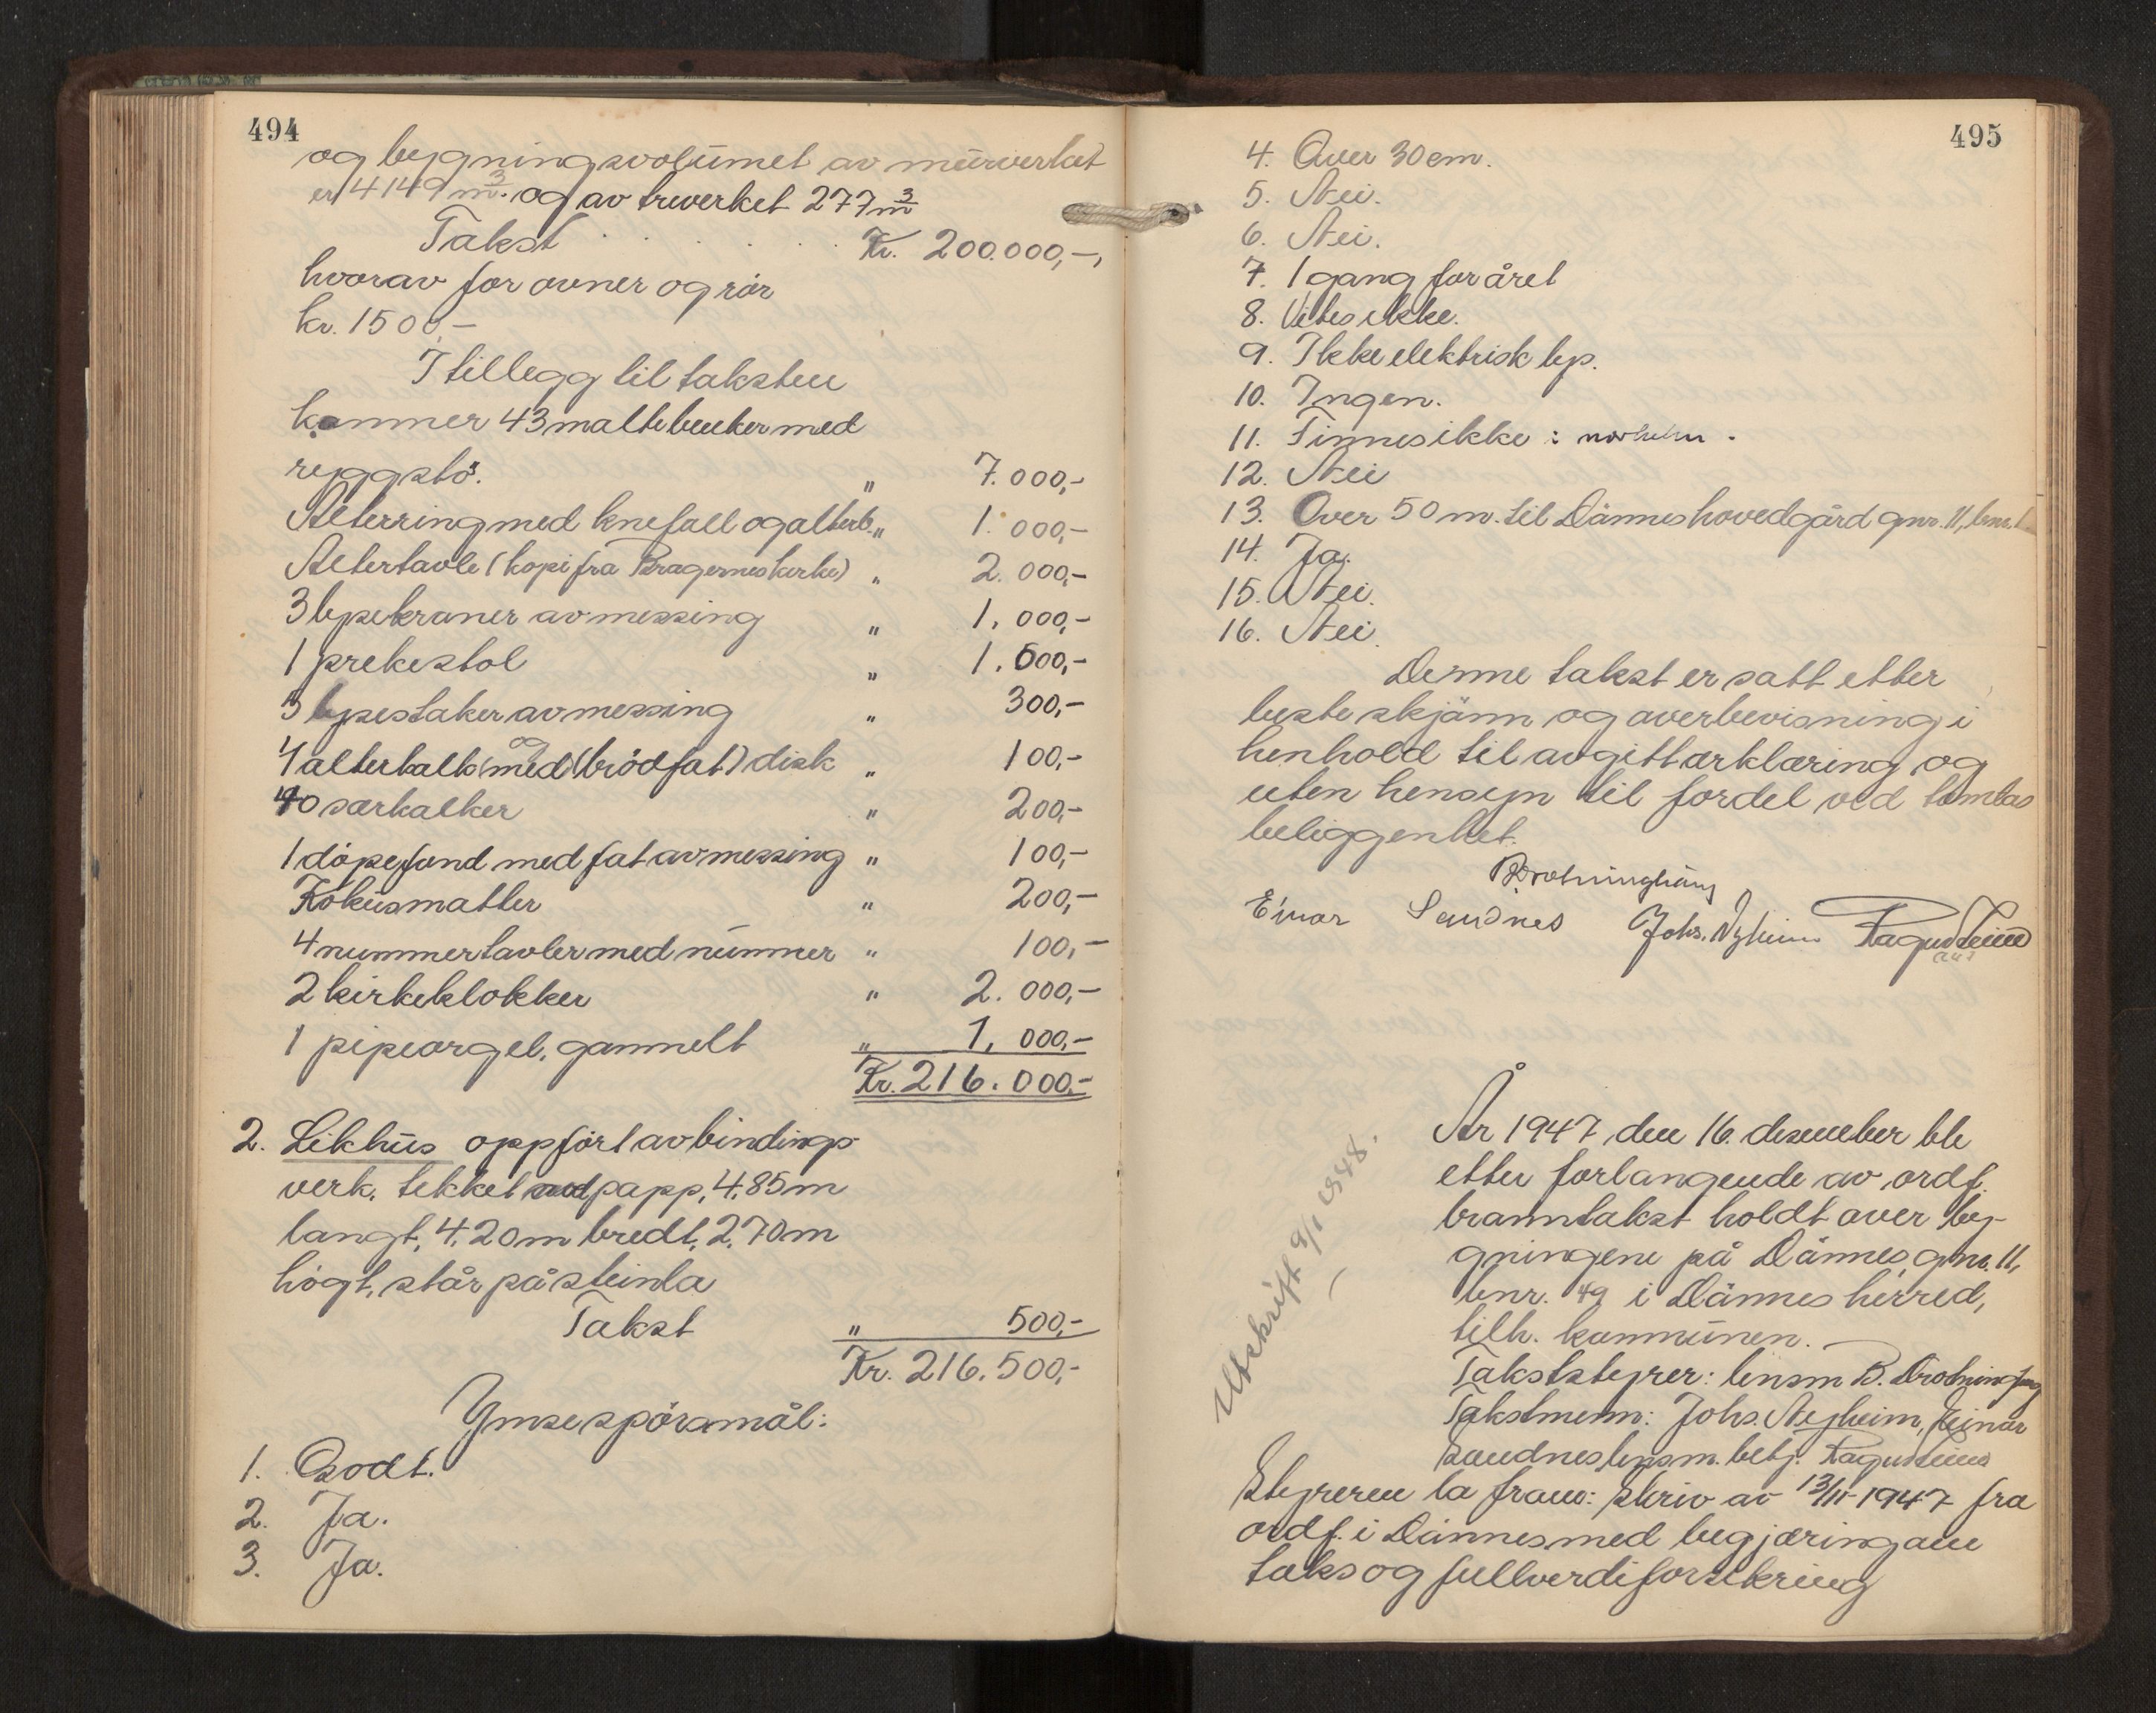 494
og bygningsvolumet av murverket
er 4149 m³. og av treverket 277 m³
Takst . . . . . . Kr. 200.000,-,
hvorav for ovner og rör
kr. 1500,-
I tillegg til taksten
kommer 43 malte benker med
ryggstö. " 7.000,-
Alterring med knefall og alterb. " 1.000,-
Altertavle (kopi fra Bragernes kirke) " 2.000,-
3 lysekroner av messing " 1.000,-
1 prekestol " 1.500,-
3 lysestaker av messing " 300,-
1 alterkalk og med (brödfat) disk " 100,-
40 særkalker " 200,-
1 döpefond med fat av messing " 100,-
Kokusmatter " 200,-
4 nummertavler med nummer " 100,-
2 kirkeklokker " 2.000,-
1 pipeorgel, gammelt " 1.000,-
Kr. 216.000,-
2. Likhus oppfört av bindings
verk, tekket med papp, 4,85 m
langt, 4,20 m bredt, 2,70 m
högt, står på steinla
Takst " 500,-
Kr. 216.500,-
Ymse spörsmål:
1. Godt.
2. Ja.
3. Ja.
495
4. Over 30 cm.
5. Nei.
6. Nei.
7. 1 gang for året
8. Vites ikke.
9. Ikke elektrisk lys.
10. Ingen.
11. Finnes ikke i nærheten.
12. Nei
13. Over 50 m. til Dönnes hovedgård gnr. 11, bnr. 1
14. Ja.
15. Nei.
16. Nei.
Denne takst er satt etter
beste skjönn og overbevisning i
henhold til avgitt erklæring og
uten hensyn til fordel ved tomtas
beliggenhet.
B. Drotninghaug
Einar Sandnes Johs. Nyheim
År 1947 den 16. desember ble
etter forlangende av ordf.
branntakst holdt over byg-
gningene på Dönnes, gnr. 11,
bnr. 49 i Dönnes herred,
tilh. kommunen.
Takststyrer: lensm B. Drotninghaug
Takstmenn: Johs. Nyheim, Einar
Sandnes lensm. betj.
Styreren la fram: Skriv av 13/11-1947 fra
ordf. i Dönnes med begjæring om
takst og fullverdiforsikring
Utskrift 9/1 1948.